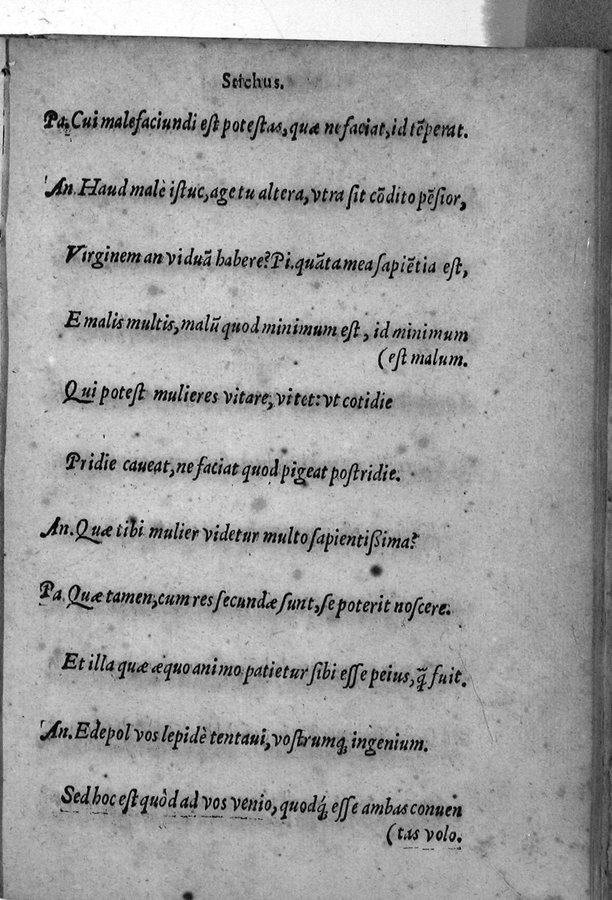 Stichus.
Pa. Cui malefaciundi eſt poteſtas, quæ ne faciat, id tẽperat.
An. Haud malè iſtuc, age tu altera, vtra ſit cõdito pẽſior,
Virginem an viduã habere? Pi. quãta mea ſapiẽtia eſt,
E malis multis, malũ quod minimum eſt, id minimum
(eſt malum.
Qui poteſt mulieres vitare, vitet: vt cotidie
Pridie caueat, ne faciat quod pigeat poſtridie.
An. Quæ tibi mulier videtur multo ſapientißima?
Pa. Quæ tamen, cum res ſecundæ ſunt, ſe poterit noſcere.
Et illa quæ æquo animo patietur ſibi eſſe peius, q̃ fuit.
An. Edepol vos lepidè tentaui, voſtrumq; ingenium.
Sed hoc eſt quòd ad vos venio, quodq́; eſſe ambas conuen
(tas volo.